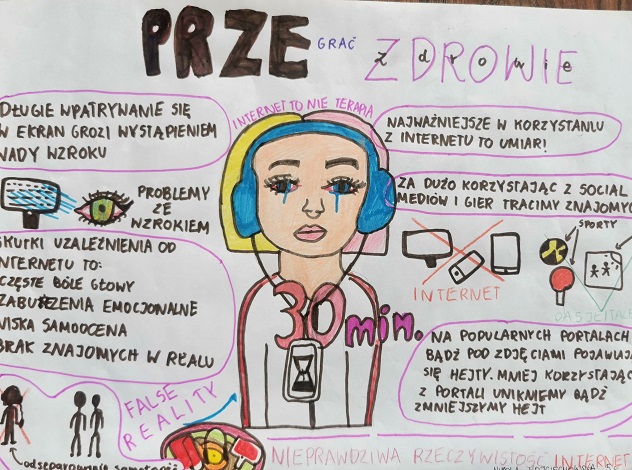 PRZE GRAĆ ZDROWIE
DŁUGIE WPATRYWANIE SIĘ
W EKRAN GROZI WYSTĄPIENIEM
WADY WZROKU
INTERNET TO NIE TERAPIA
NAJWAŻNIEJSZE W KORZYSTANIU
Z INTERNETU TO UMIAR!
PROBLEMY
ZE
WZROKIEM
ZA DUŻO KORZYSTAJĄC Z SOCIAL
MEDIÓW I GIER TRACIMY ZNAJOMYC
SPORTY
INTERNET
SKUTKI UZALEŻNIENIA OD
INTERNETU TO:
CZĘSTE BÓLE GŁOWY
ZABURZENIA EMOCJONALNE
NISKA SAMOOCENA
BRAK ZNAJOMYCH W REALU
30 min.
NA POPULARNYCH PORTALACH
BĄDŹ POD ZDJĘCIAMI POJAWIAJ
SIĘ HEJTY. MNIEJ KORZYSTAJĄC
Z PORTALI UNIKNIEMY BĄDŹ
ZMNIEJSZYMY HEJT
FALSE
REALITY
NIEPRAWDZIWA RZECZYWISTOŚĆ INTERNET